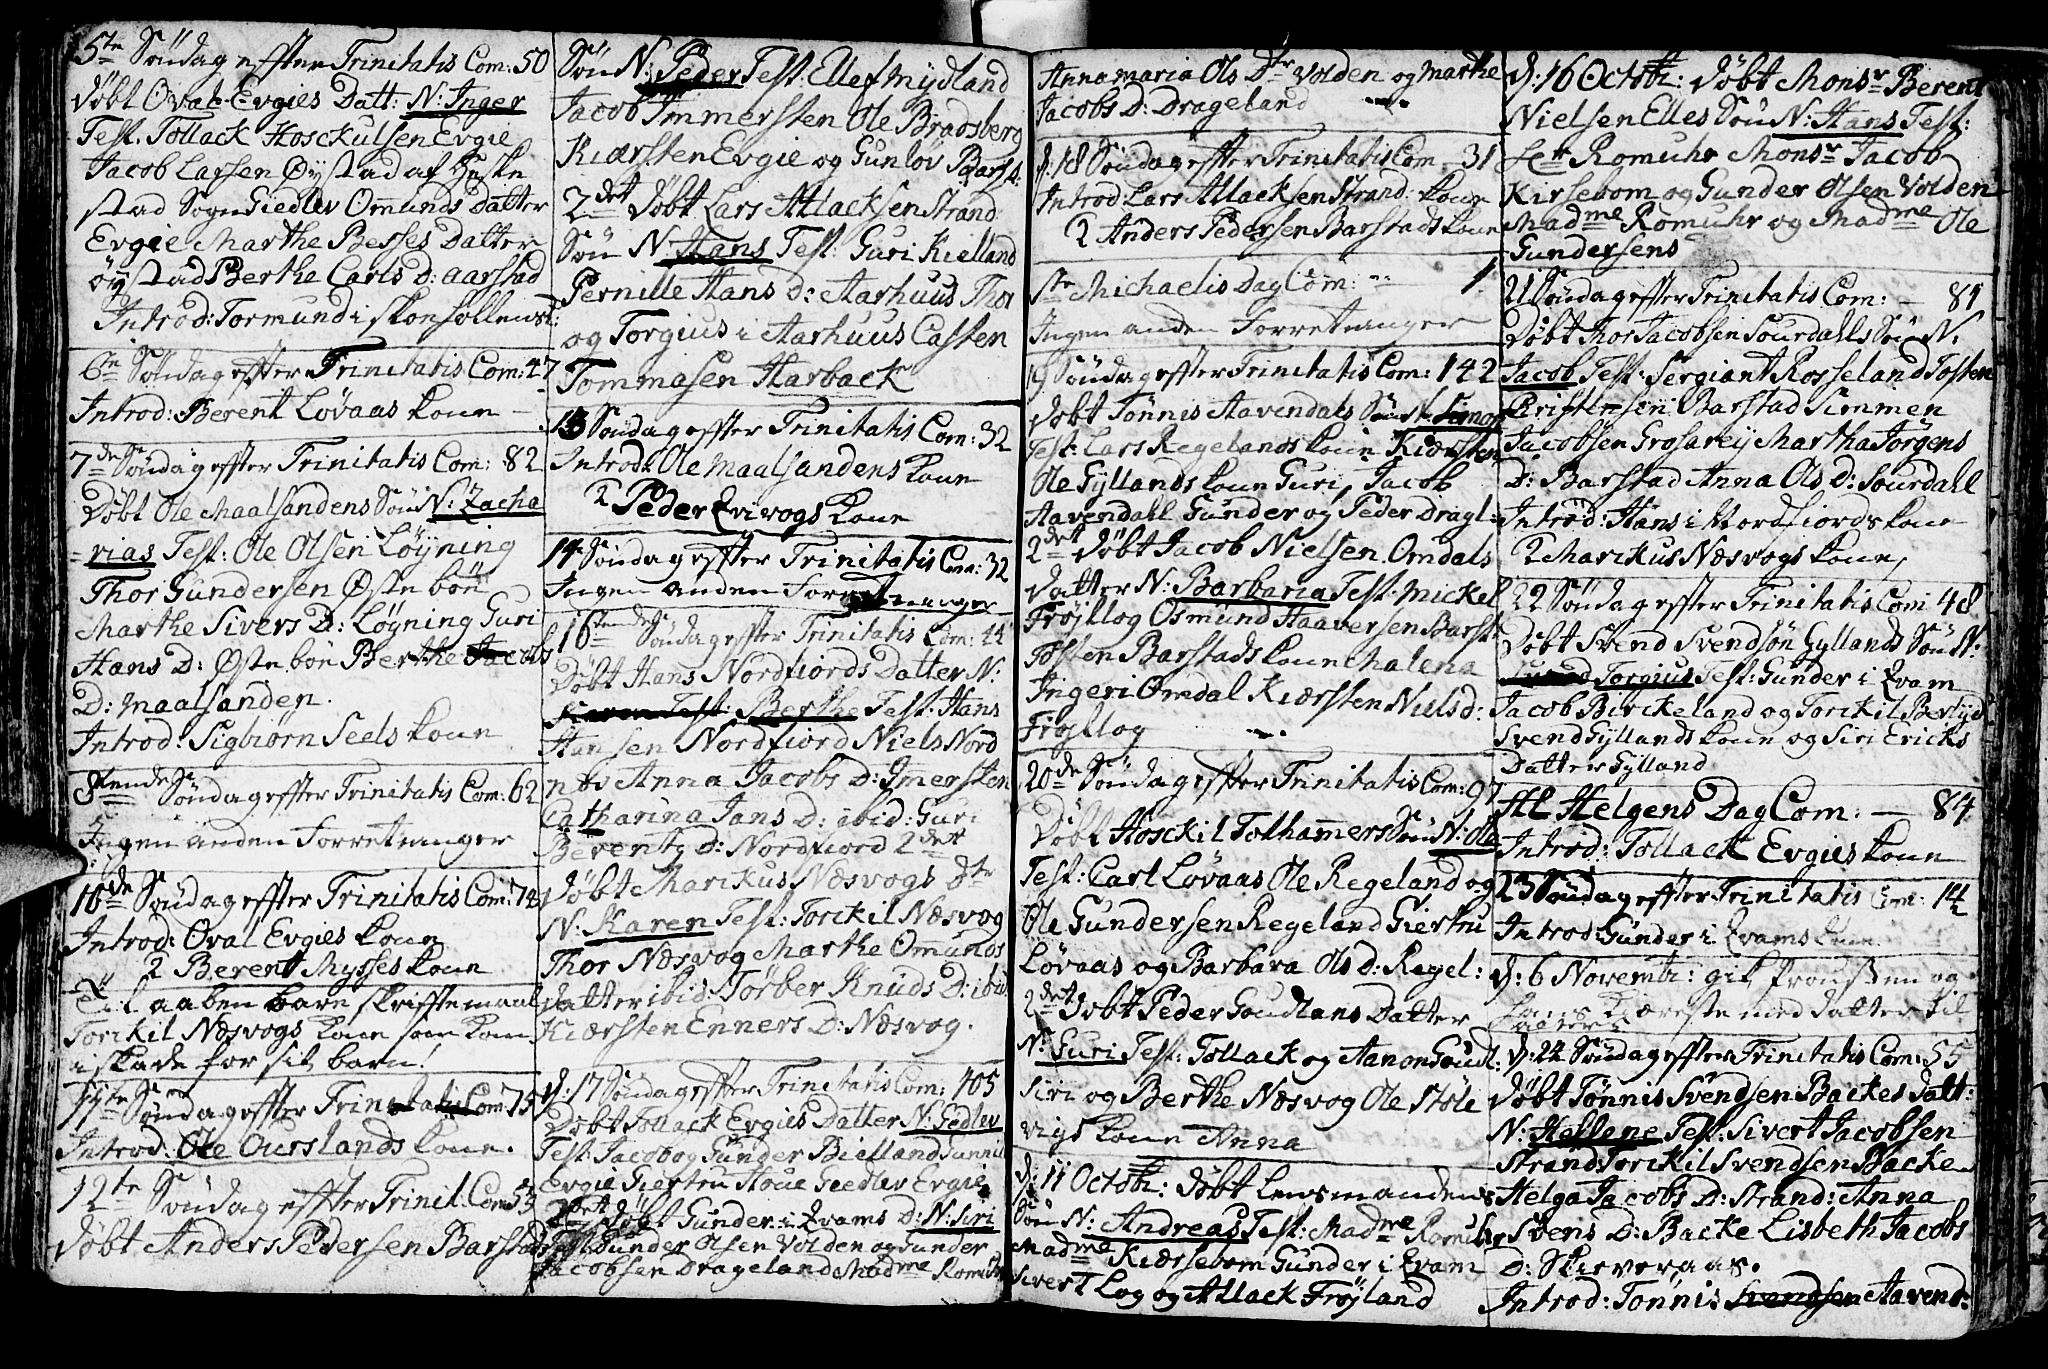 5te Søndag effter Trinitatis Com: 50
døbt Oval Evgies Datt: N: Inger
Test. Tollack Hosckulsen Evgie
Jacob Larsen Øÿstad af Heske
stad Sogn Giedlev Omunds Datter
Evgie Marthe Besses Datter
øÿstad Berthe Carls D: aarstad
Introd: Tormund i skonhollens k:
6te Søndag effter Trinitatis Com: 47
Introd: Berent Løvaas kone
7de Søndag effter Trinitatis Com: 82
Døbt Ole Maalsandens Søn N: Zacha
rias Test: Ole Olsen Løÿning
Thor Gundersen Østebön
Marthe Sivers D: Løÿning Guri
Hans D: Østebön Berthe Jacobs
D: Maalsanden.
Introd: Sigbiørn Seels kone
8tende Søndag effter Trinitatis Com: 62
Ingen anden Forretninger
10de Søndag effter Trinitatis Com: 74
Introd: Oval Evgies kone
2 Berent Mysses kone
Til aaben bare skrifftemaal
Torkil Næsvogs kone som kom
i skade for sit barn!
11te Søndag effter Trinitatis Com: 75
Introd: Ole Ouerslands kone.
12te Søndag effter Trinit. Com: 53
døbt Anders Pedersen Barstads
Søn N: Peder Test: Ellef Mydland
Jacob Immersten Ole Bradsberg
Kiærsten Evgie og Gunløv Barst:
2det døbt Lars Atlacksen Strand:
Søn N: Hans Test: Guri Kielland
Pernille Hans D: Aarhuus Thor
og Torgius i Aarhuus Casten
Tommasen Harback
13 Søndag effter Trinitatis Com: 32
Introd: Ole Maalsandens kone
2 Peder Evivogs kone
14 Søndag effter Trinitatis Com: 32
Ingen anden Forretninger
16tende Søndag effter Trinitatis Com: 44
Døbt Hans Nordfiords Datter N:
Karen Test: Berthe Test. Hans
Hansen Nordfiord Niels Nord
nbö Anna Jacobs D: Imersten
Catharina Jans D: ibid: Guri
Berenty D: Nordfiord 2det
døbt Marikus Næsvogs Dtr
N: Karen Test: Torckil Næsvog
Thor Næsvog Marthe Omunds
datter ibid: Törber Knuds D: ibid.
Kiærsten Enners D: Næsvog.
d: 17 Søndag effter Trinitatis Com: 105
Døbt Tollack Evgies Datter N: Gedlev
Test: Jacob og Gunder Bielland Gunnil
Evgie Giertru Houe Geedlev Ergie
2det døbt Gunder i Qvams D: N: Siri
Test: Gunder Olsen Volden og Gunder
Jacobsen Drageland Madme Romuhr
Anna Maria Ols Dtr Volden og Marthe
Jacobs D: Drageland
d: 18 Søndag effter Trinitatis Com 31
Introd Lars Atlacksen Strand: kone
2 Anders Pedersen Barstads kone
Ste Michaelis Dag Com: 1
Ingen anden Forretninger
19 Søndag effter Trinitatis Com: 142
døbt Tønnis Aavendals Søn N: Simon
Test: Lars Regelands kone Kiærsten
Ole Gyllands kone Guri, Jacob
Aavendall Gunder og Peder Dragl:
2det døbt Jacob Nielsen Omdals
datter N: Barbaria Test: Mickel
Frøjtlog Osmund Haaversen Barst:
Tosten Barstads kone Malena
Ingeri Omdal Kiærsten Niels d:
Frøjtlog
20de Søndag effter Trinitatis Com: 97
Døbt Hosckil Tolhammers Søn N: Ole
Test: Carl Løvaas Ole Regeland og
Ole Gundersen Regeland Giertru
Løvaas og Barbara Ols d: Regel:
2det Døbt Peder Goudlans Datter
N: Guri Test: Tollack og Aanon Goudl:
Siri og Berthe Næsvog Ole Støle
vigs kone Anna
d: 11 Octobr: døbt Lensmandens
Søn N: Andreas Test: Madme Romuhr
Madme Kiærsebom Gunder i Qvam
Sivert Log og Atlack Frøjland
d: 16 Octobr: døbt Monsr Berent
Nielsen Elles Søn N: Hans Test:
Romuhr Monsr Jacob
Kirsebom og Gunder Olsen Volden
Madme Romuhr og Madme Ole
Gundersens
21 Søndag effter Trinitatis Com: — 81
Døbt Thor Jacobsen Sourdalls Søn N:
Jacob Test: Sergiant Rosseland Tosten
Christensen Barstad Simmen
Jacobsen Grosareÿ Martha Jørgens
D: Barstad Anna Ols D: Sourdall
Introd: Hans i Nordfiords kone
2 Marikus Næsvogs kone,
22 Søndag effter Trinitatis Com 48
Døbt Svend Svendsøn Gyllands Søn N:
Svend Torgius Test: Gunder i Qvam
Jacob Birckeland og Torckil Berlyd
Svend Gyllands kone og Siri Ericks
Datter Gylland
All Helgens Dag Com: — 84
Introd: Tollack Evgies kone
23 Søndag effter Trinitatis Com: 14
Introd: Gunder i Qvams kone
d: 6 Novembr: gik Provsten og
Hans Kiæreste med datter til
alters
d: 24 Søndag effter Trinitatis Com: 55
døbt Tønnis Svendsen Backes datt:
N: Hellene Test: Sivert Jacobsen
Strand Torckil Svendsen Backe
Helga Jacobs D: Strand: Anna
Svens D: Backe Lisbeth Jacobs
D: Skieveraas.
Introd: Tønnis Svendsen Aavend: